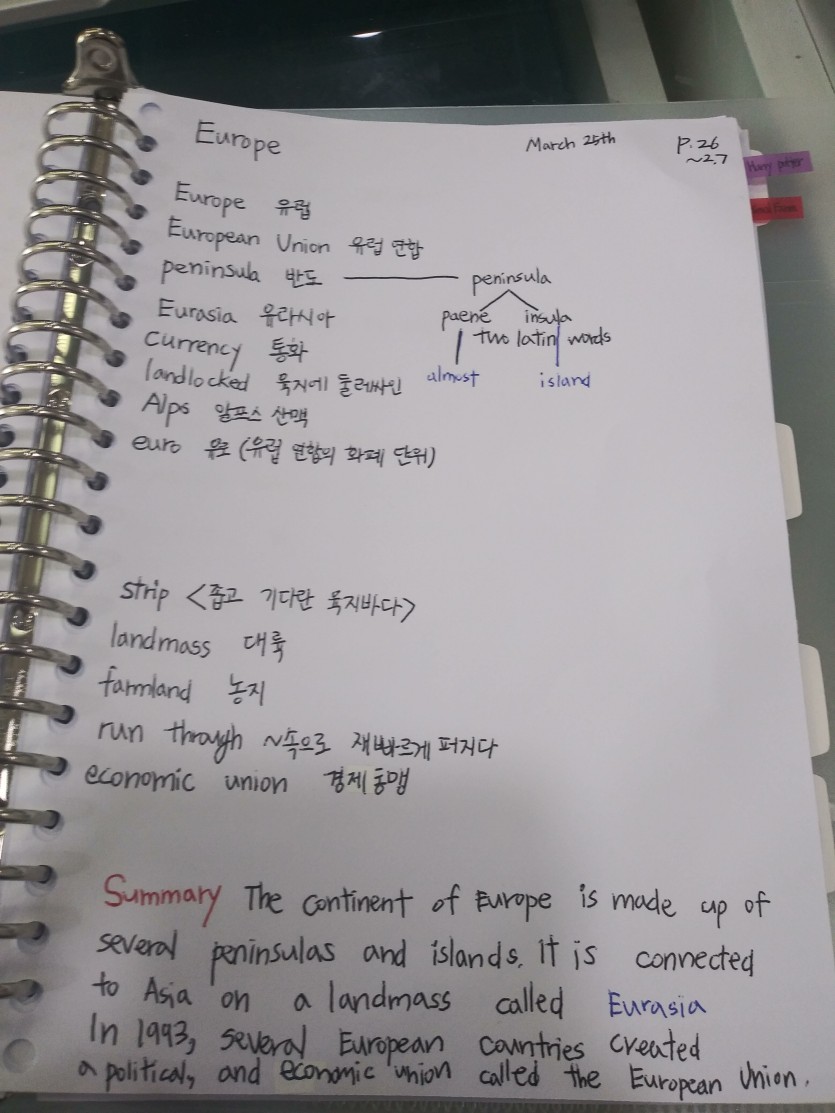 Europe
March 25th
P.26
~27
Harry potter
Europe 유럽
European Union 유럽 연합
peninsula 반도 — peninsula
Eurasia 유라시아
paene insula
currency 통화
two latin words
landlocked 육지에 둘레싸인
almost island
Alps 알프스 산맥
euro 유로 (유럽 연합의 화폐 단위)
strip <좁고 기다란 육지바다>
landmass 대륙
farmland 농지
run through ~속으로 재빠르게 퍼지다
economic union 경제동맹
Summary The continent of Europe is made up of
several peninsulas and islands. It is connected
to Asia on a landmass called Eurasia
In 1993, several European countries created
a political, and economic union called the European Union.